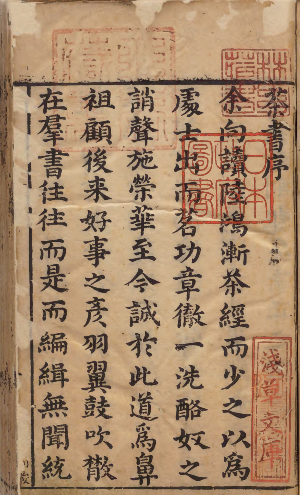 茶書序
余向讀陸鴻漸茶經而少之以爲
處士出而茗功章徹一洗酪奴之
誚聲施榮華至今誠於此道爲鼻
祖顧後来好事之彥羽翼鼓吹散
在羣書往往而是而編緝無聞統
日本政府圖書
淺草文庫